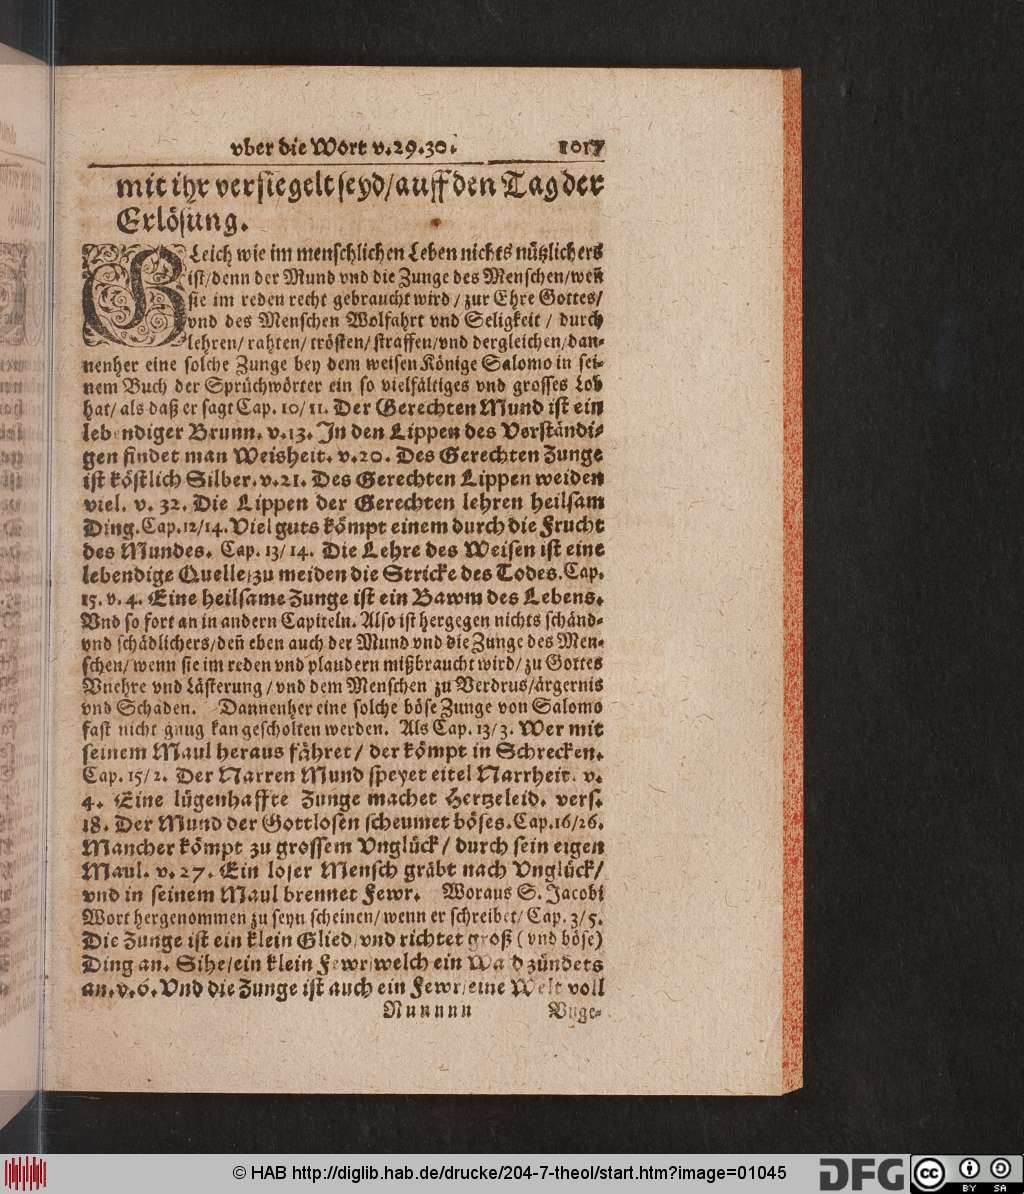 vber die Wort v.29.30. 1017
mit ihr versiegelt seyd/auff den Tag der
Erlösung.
GLeich wie im menschlichen Leben nichts nützlichers
ist/denn der Mund vnd die Zunge des Menschen/weñ
sie im reden recht gebraucht wird / zur Ehre Gottes/
vnd des Menschen Wolfahrt vnd Seligkeit / durch
lehren/ rahten/ trösten/ straffen/vnd dergleichen/dan-
nenher eine solche Zunge bey dem weisen Könige Salomo in sei-
nem Buch der Sprüchwörter ein so vielfältiges vnd grosses Lob
hat/ als daß er sagt Cap. 10/11. Der Gerechten Mund ist ein
lebendiger Brunn. v.13. In den Lippen des Verständi-
gen findet man Weisheit. v.20. Des Gerechten Zunge
ist köstlich Silber. v.21. Des Gerechten Lippen weiden
viel. v. 32. Die Lippen der Gerechten lehren heilsam
Ding. Cap.12/14. Viel guts kömpt einem durch die Frucht
des Mundes. Cap. 13/14. Die Lehre des Weisen ist eine
lebendige Quelle/zu meiden die Stricke des Todes. Cap.
15. v. 4. Eine heilsame Zunge ist ein Bawm des Lebens.
Vnd so fort an in andern Capiteln. Also ist hergegen nichts schänd-
vnd schädlichers/deñ eben auch der Mund vnd die Zunge des Men-
schen/wenn sie im reden vnd plaudern mißbraucht wird/zu Gottes
Vnehre vnd Lästerung /vnd dem Menschen zu Verdrus/ärgernis
vnd Schaden. Dannenher eine solche böse Zunge von Salomo
fast nicht gnug kan gescholten werden. Als Cap. 13/3. Wer mit
seinem Maul heraus fähret / der kömpt in Schrecken.
Cap. 15/2. Der Narren Mund speyet eitel Narrheit. v.
4. Eine lügenhaffte Zunge machet Hertzeleid. vers.
18. Der Mund der Gottlosen scheumet böses. Cap.16/26.
Mancher kömpt zu grossem Vnglück / durch sein eigen
Maul. v. 27. Ein loser Mensch gräbt nach Vnglück/
vnd in seinem Maul brennet Fewr. Woraus S. Jacobi
Wort hergenommen zu seyn scheinen/wenn er schreibet/ Cap. 3/5.
Die Zunge ist ein klein Glied/vnd richtet groß ( vnd böse)
Ding an. Sihe/ein klein Fewr/welch ein Wald zündets
an. v.6. Vnd die Zunge ist auch ein Fewr/eine Welt voll
Nnnnnn Vnge-
© HAB http://diglib.hab.de/drucke/204-7-theol/start.htm?image=01045 DFG cc BY SA